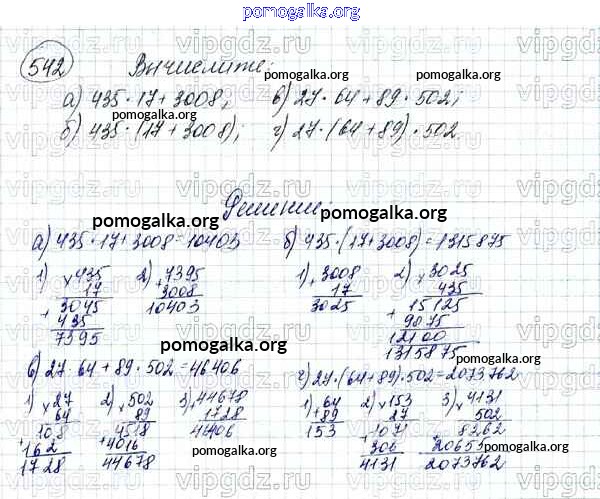 pomogalka.org
542 Вычислите:
pomogalka.org
а) 435 · 17 + 3008; в) 27 · 64 + 89 · 502;
б) 435 · (17 + 3008); г) 27 · (64 + 89) · 502.
pomogalka.org pomogalka.org
Решение:
pomogalka.org pomogalka.org
а) 435 · 17 + 3008 = 10403 б) 435 · (17 + 3008) = 1315875
1) × 435 2) + 7395 1) + 3008 2) × 3025
17 3008 17 435
3045 10403 3025 15125
+ 435 + 9075
7395 12100
pomogalka.org 1315875
pomogalka.org
в) 27 · 64 + 89 · 502 = 46406 г) 27 · (64 + 89) · 502 = 2073762
1) × 27 2) × 502 3) + 44678 1) + 64 2) × 153 3) × 4131
64 89 1728 89 27 502
108 4518 46406 153 1071 8262
+ 162 + 4016 + 306 + 20655
1728 44678 4131 2073762
pomogalka.org pomogalka.org